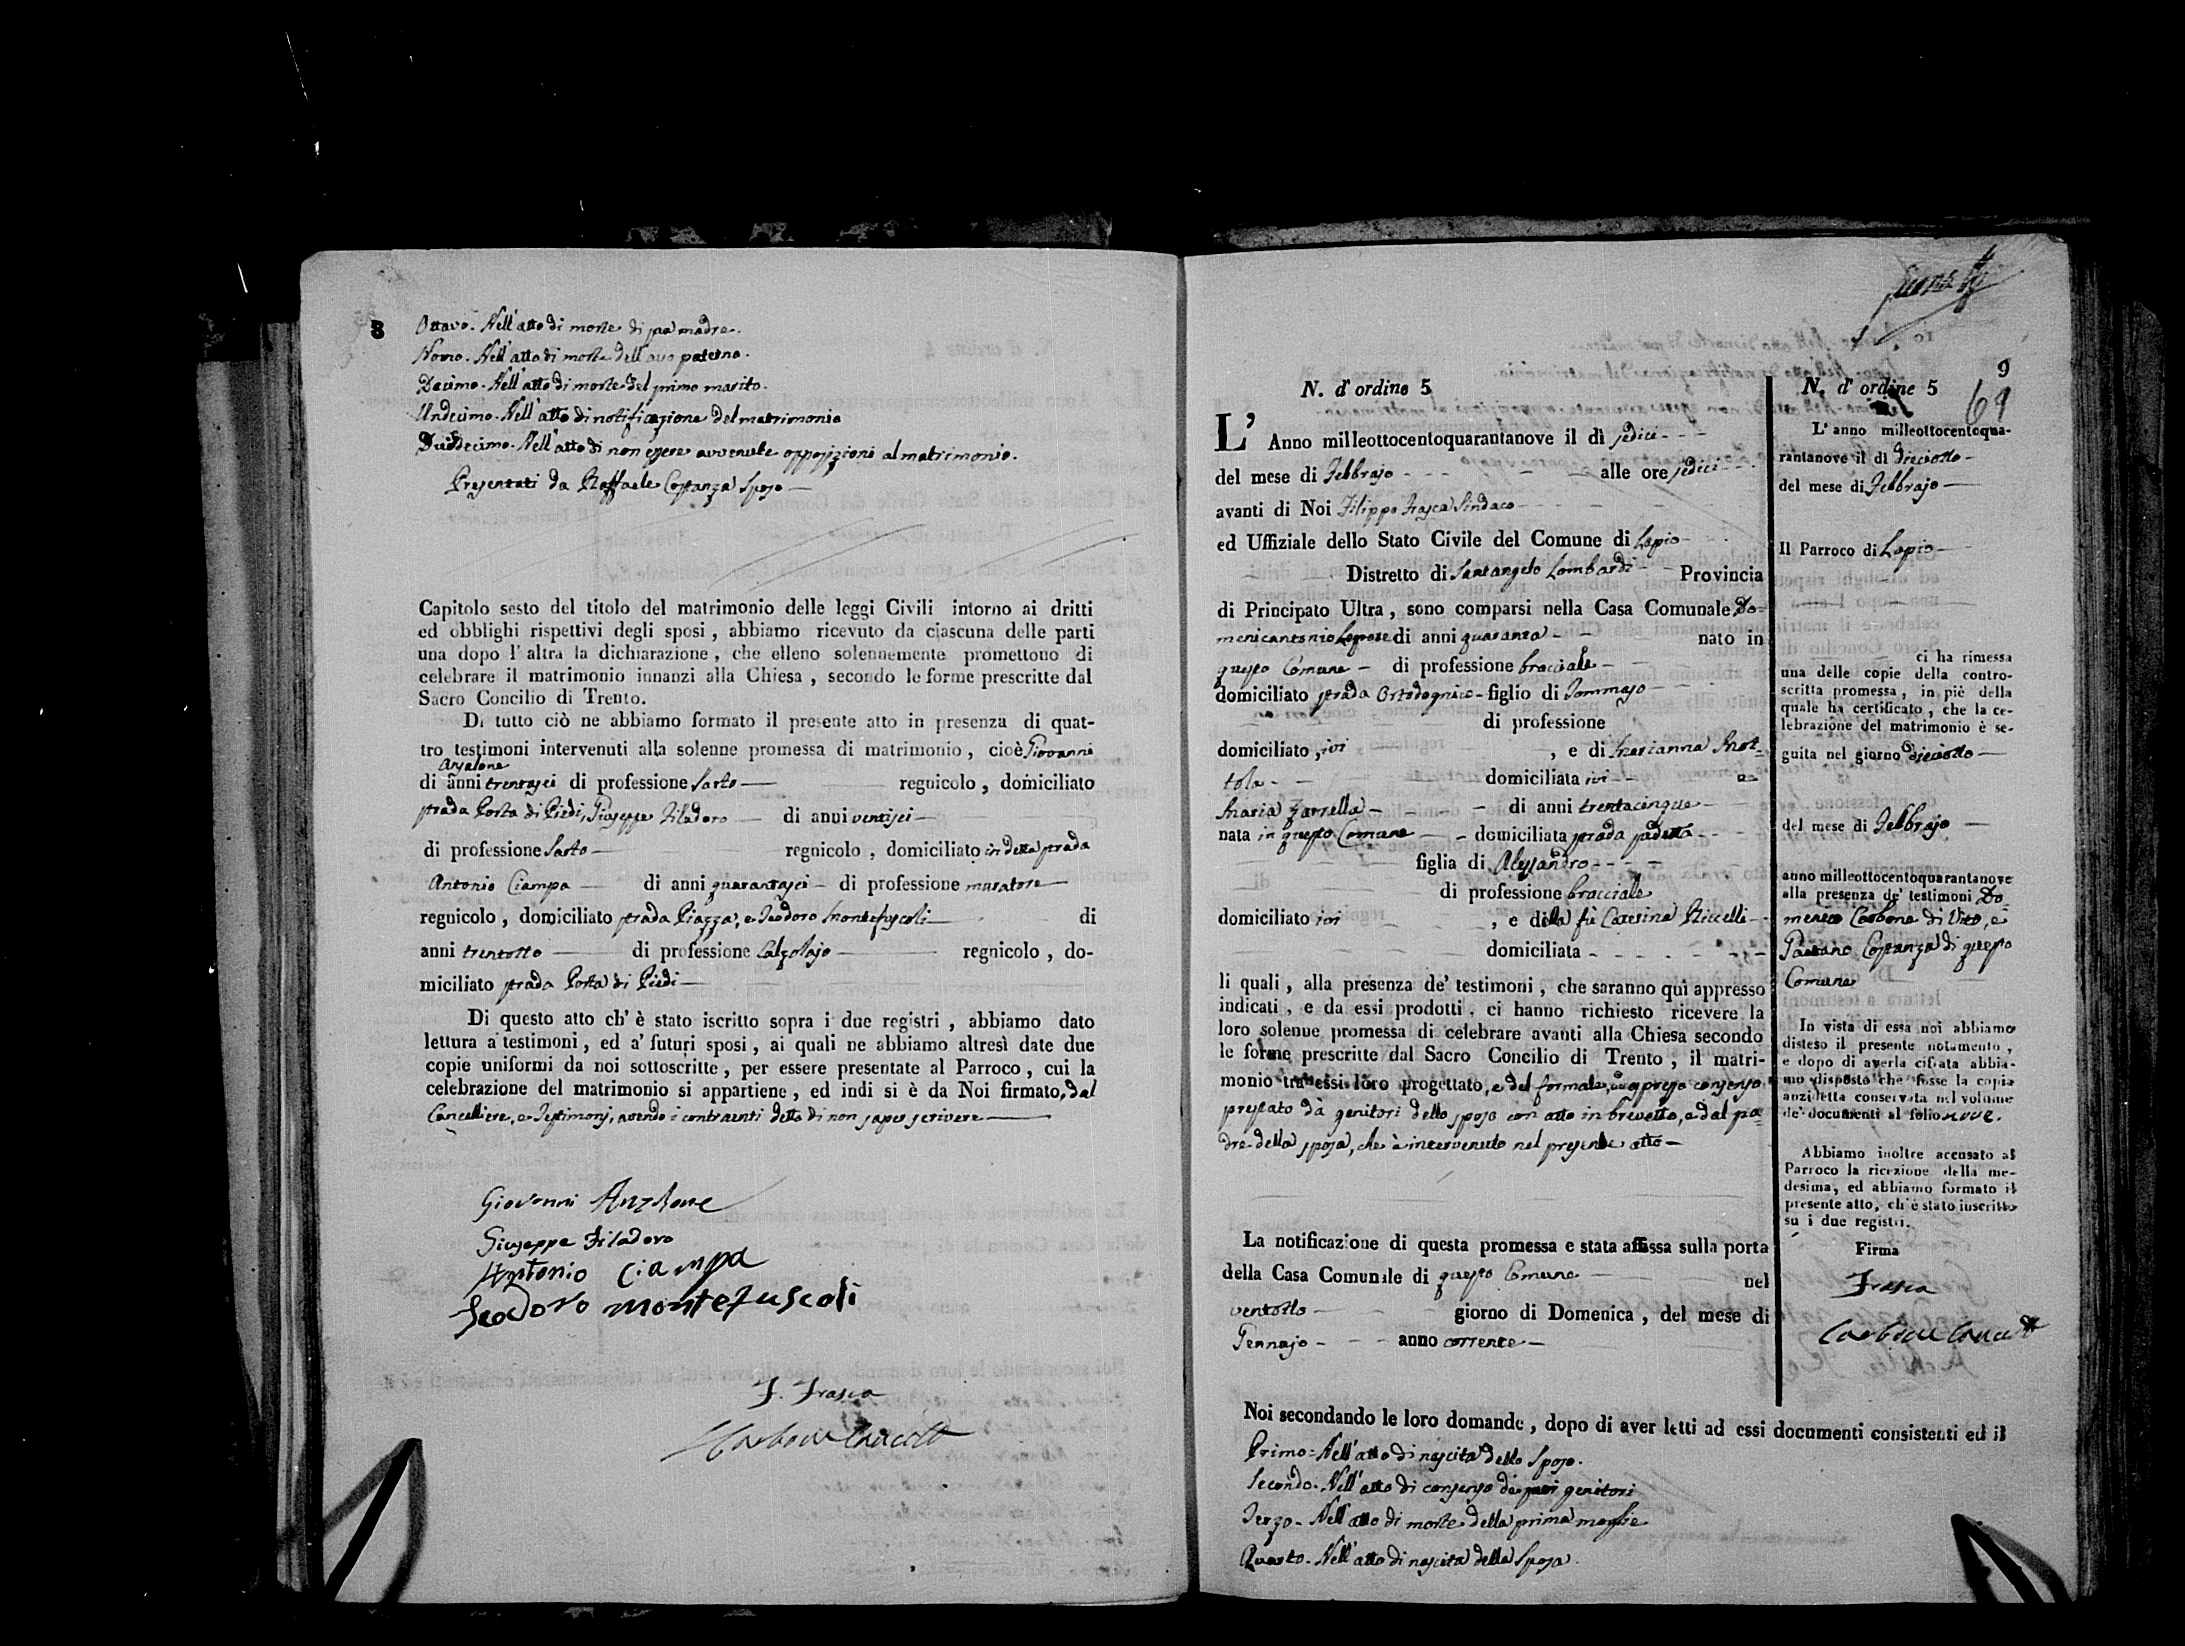 8
Ottavo. Nell'atto di morte di sua madre.
Nono. Nell'atto di morte dell'avo paterno.
Decimo. Nell'atto di morte del primo marito.
Undecimo. Nell'atto di notificazione del matrimonio
Duodecimo. Nell'atto di non essere avvenute opposizioni al matrimonio.
Presentati da Raffaele Costanza Sposo
Capitolo sesto del titolo del matrimonio delle leggi Civili intorno ai dritti
ed obblighi rispettivi degli sposi, abbiamo ricevuto da ciascuna delle parti
una dopo l'altra la dichiarazione, che elleno solennemente promettono di
celebrare il matrimonio innanzi alla Chiesa, secondo le forme prescritte dal
Sacro Concilio di Trento.
Di tutto ciò ne abbiamo formato il presente atto in presenza di quat-
tro testimoni intervenuti alla solenne promessa di matrimonio, cioè Giovanni
Anzalone
di anni trentasei di professione Sarto regnicolo, domiciliato
strada Porta di Piedi, Giuseppe Filadoro di anni ventisei
di professione Sarto regnicolo, domiciliato in detta strada
Antonio Ciampa di anni quarantasei di professione muratore
regnicolo, domiciliato strada Piazza, e Teodoro Montefuscoli di
anni trentotto di professione Calzolajo regnicolo, do-
miciliato strada Porta di Piedi
Di questo atto ch'è stato iscritto sopra i due registri, abbiamo dato
lettura a'testimoni, ed a' futuri sposi, ai quali ne abbiamo altresì date due
copie uniformi da noi sottoscritte, per essere presentate al Parroco, cui la
celebrazione del matrimonio si appartiene, ed indi si è da Noi firmato, dal
Cancelliere, e Testimonj, avendo i contraenti detto di non saper scrivere
Giovanni Anzalone
Giuseppe Filadoro
Antonio Ciampa
Teodoro Montefuscoli
F. Frasca
Carbone
9
61
N. d'ordine 5
L'Anno milleottocentoquarantanove il dì sedici
del mese di Febbrajo alle ore sedici
avanti di Noi Filippo Frasca Sindaco
ed Uffiziale dello Stato Civile del Comune di Lapio
Distretto di Santangelo Lombardi Provincia
di Principato Ultra, sono comparsi nella Casa Comunale Do-
menicantonio Lepore di anni quaranta nato in
questo Comune di professione bracciale
domiciliato strada figlio di Tommaso
di professione
domiciliato, ivi, e di Marianna
domiciliata ivi
Maria Zarrella di anni trentacinque
nata in questo Comune domiciliata strada
figlia di Alessandro
di professione bracciale
domiciliato ivi, e della fù Caterina Riccelli
domiciliata
li quali, alla presenza de' testimoni, che saranno qui appresso
indicati, e da essi prodotti, ci hanno richiesto ricevere la
loro solenne promessa di celebrare avanti alla Chiesa secondo
le forme prescritte dal Sacro Concilio di Trento, il matri-
monio tra essi loro progettato, e del formale, ed espresso consenso
prestato dà genitori dello sposo con atto in brevetto, e dal pa-
dre della sposa, che è intervenuto nel presente atto
La notificazione di questa promessa e stata affissa sulla porta
della Casa Comunale di questo Comune nel
ventotto giorno di Domenica, del mese di
Gennajo anno corrente
N. d'ordine 5
L'anno milleottocentoqua-
rantanove il dì dieciotto
del mese di Febbrajo
Il Parroco di Lapio
ci ha rimessa
una delle copie della contro-
scritta promessa, in piè della
quale ha certificato, che la ce-
lebrazione del matrimonio è se-
guita nel giorno dieciotto
del mese di Febbrajo
anno milleottocentoquarantanove
alla presenza de' testimoni Do-
menico Carbone di Vito, e
Gaetano Costanza di questo
Comune
In vista di essa noi abbiamo
disteso il presente notamento,
e dopo di averla cifrata abbia-
mo disposto che fosse la copia
anzidetta conservata nel volume
de' documenti al folio
Abbiamo inoltre accusato al
Parroco la ricezione della me-
desima, ed abbiamo formato il
presente atto, ch'è stato inscritto
su i due registri.
Firma
Frasca
Carbone
Noi secondando le loro domande, dopo di aver letti ad essi documenti consistenti ed il
Primo. Nell'atto di nascita dello Sposo.
Secondo. Nell'atto di consenso dei suoi genitori
Terzo. Nell'atto di morte della prima moglie
Quarto. Nell'atto di nascita della Sposa.